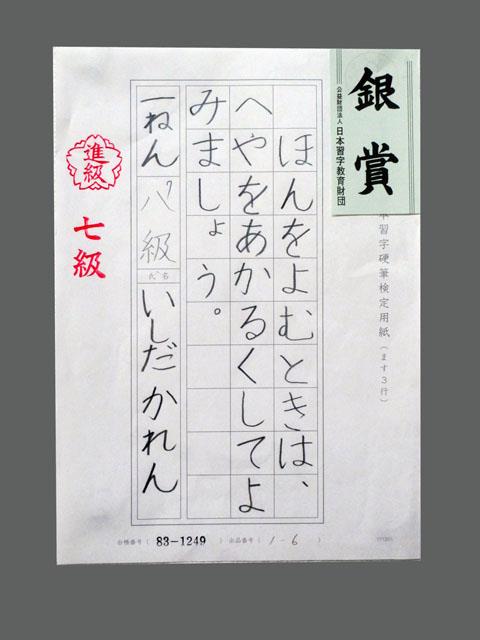 銀賞
公益財団法人 日本習字教育財団
本習字硬筆検定用紙(ます3行)
ほんをよむときは、
へやをあかるくしてよ
みましょう。
一ねん 八級 氏名 いしだかれん
進級
七級
台帳番号( 83-1249 ) 出品番号( 1-6 )